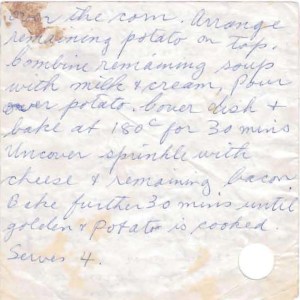 over the corn. Arrange
remaining potato on top.
Combine remaining soup
with milk & cream, Pour
over potato. Cover dish &
bake at 180°c for 30 mins
Uncover sprinkle with
cheese & remaining bacon
Bake further 30 mins until
golden & potato is cooked.
Serves 4.